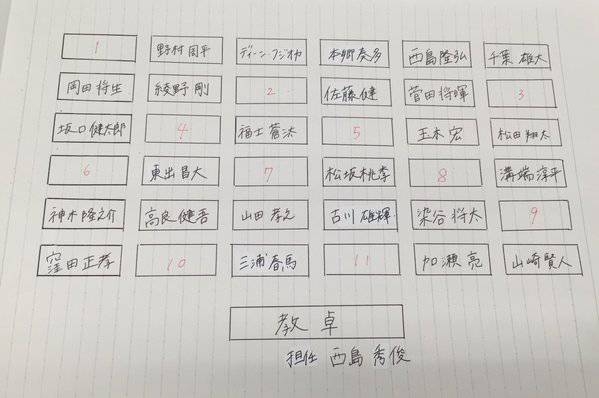 1 野村周平 ディーン・フジオカ 本郷奏多 西島隆弘 千葉雄大
岡田将生 綾野剛 2 佐藤健 菅田将暉 3
坂口健太郎 4 福士蒼汰 5 玉木宏 松田翔太
6 東出昌大 7 松坂桃李 8 溝端淳平
神木隆之介 高良健吾 山田孝之 古川雄輝 染谷将太 9
窪田正孝 10 三浦春馬 11 加瀬亮 山崎賢人
教卓
担任 西島秀俊